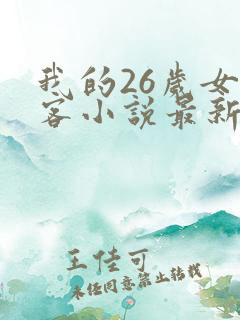 我的26歲女
客小說最新
王佳可
未经同意禁止转载